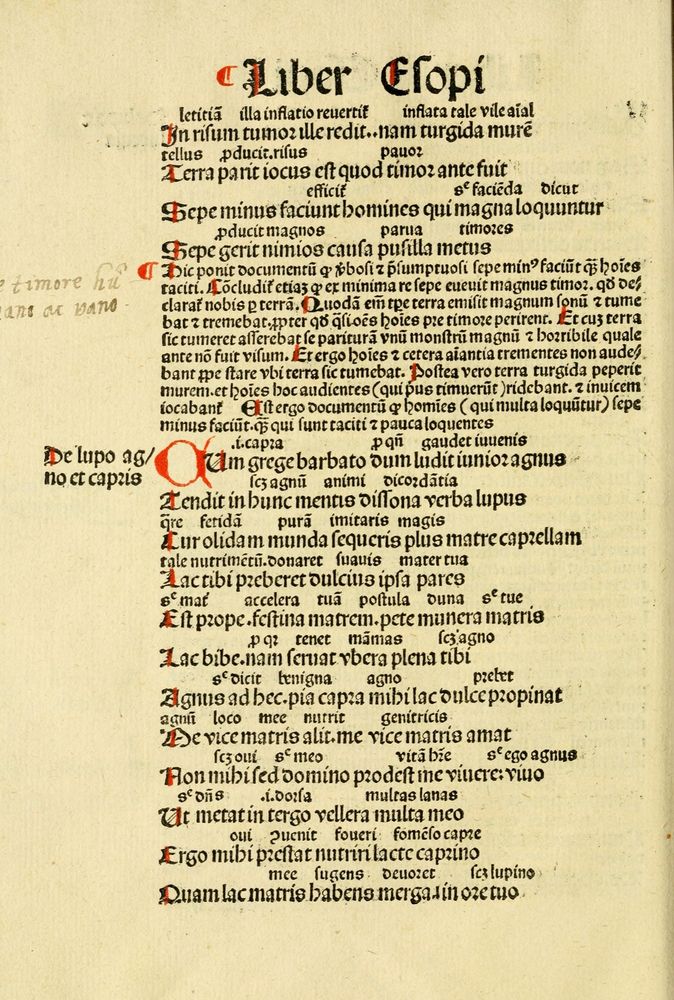 ¶ Liber Esopi
letitiā illa inflatio revertit᷑ inflata tale vile aīal
In risum tumor ille redit..nam turgida murē
tellus ꝓducit.risus pavor
Terra parit iocus est quod timor ante fuit
efficit᷑ sᶜ faciēda dicut
Sepe minus faciunt homines qui magna loquuntur
ꝓducit magnos parua timores
Sepe gerit nimios causa pusilla metus
¶ Hic ponit documentū ꝙ v̄bosi ⁊ p̄sumptuosi sepe minꝰ faciūt qȝ hoīes
taciti. Cōcludit᷑ etiaȝ ꝙ ex minima re sepe eueuit magnus timor. qd̄ de/
e timore hu᷒
clarat᷑ nobis ꝑ terrā. Quodā em̄ tꝑe terra emisit magnum sonū ⁊ tume
nano ac vano
bat ⁊ tremebat.ꝓpter qd̄ q̄si oēs hoīes pre timore perirent. Et cuȝ terra
sic tumeret asserebat se parituram vnū monstrū magnū ⁊ horribile quale
ante nō fuit visum. Et ergo hoīes ⁊ cetera aīantia trementes non aude/
bant ꝓpe stare vbi terra sic tumebat. Postea vero terra turgida peperit
murem.et hoīes hoc audientes (qui pͥus timuerūt) ridebant. ⁊ inuicem
iocabant᷑ Est ergo documentū ꝙ homīes (qui multa loquūtur) sepe
minus faciūt.qȝ qui sunt taciti ⁊ pauca loquentes
De lupo ag/
no et capris
.i.capra ꝓ qn̄ gaudet iuvenis
CUm grege barbato dum ludit iunior agnus
scȝ agnū animi dicordātia
Tendit in hunc mentis dissona verba lupus
q̄re fetidā purā imitaris magis
Cur olidam munda sequeris plus matre caprellam
tale nutrimētū.donaret suavis mater tua
Lac tibi preberet dulcius ipsa pares
sᶜ mat᷑ accelera tuā postula duna sᶜ tue
Est prope.festina matrem.pete munera matris
ꝓ qꝛ tenet māmas scȝ agno
Lac bibe.nam seruat vbera plena tibi
sᶜ dicit benigna agno prebet
Agnus ad hec.pia capra mihi lac dulce propinat
agnū loco mee nutrit genitricis
Me vice matris alit.me vice matris amat
scȝ oui sᶜ meo vitā hr̄e sᶜ ego agnus
Non mihi sed domino prodest me viuere: vivo
sᶜ dn̄s .i.dorsa multas lanas
Ut metat in tergo vellera multa meo
oui ꝯuenit foueri fomēso capre
Ergo mihi prestat nutriri lacte caprino
mee sugens devoret scȝ lupino
Quam lac matris habens mergar in ore tuo